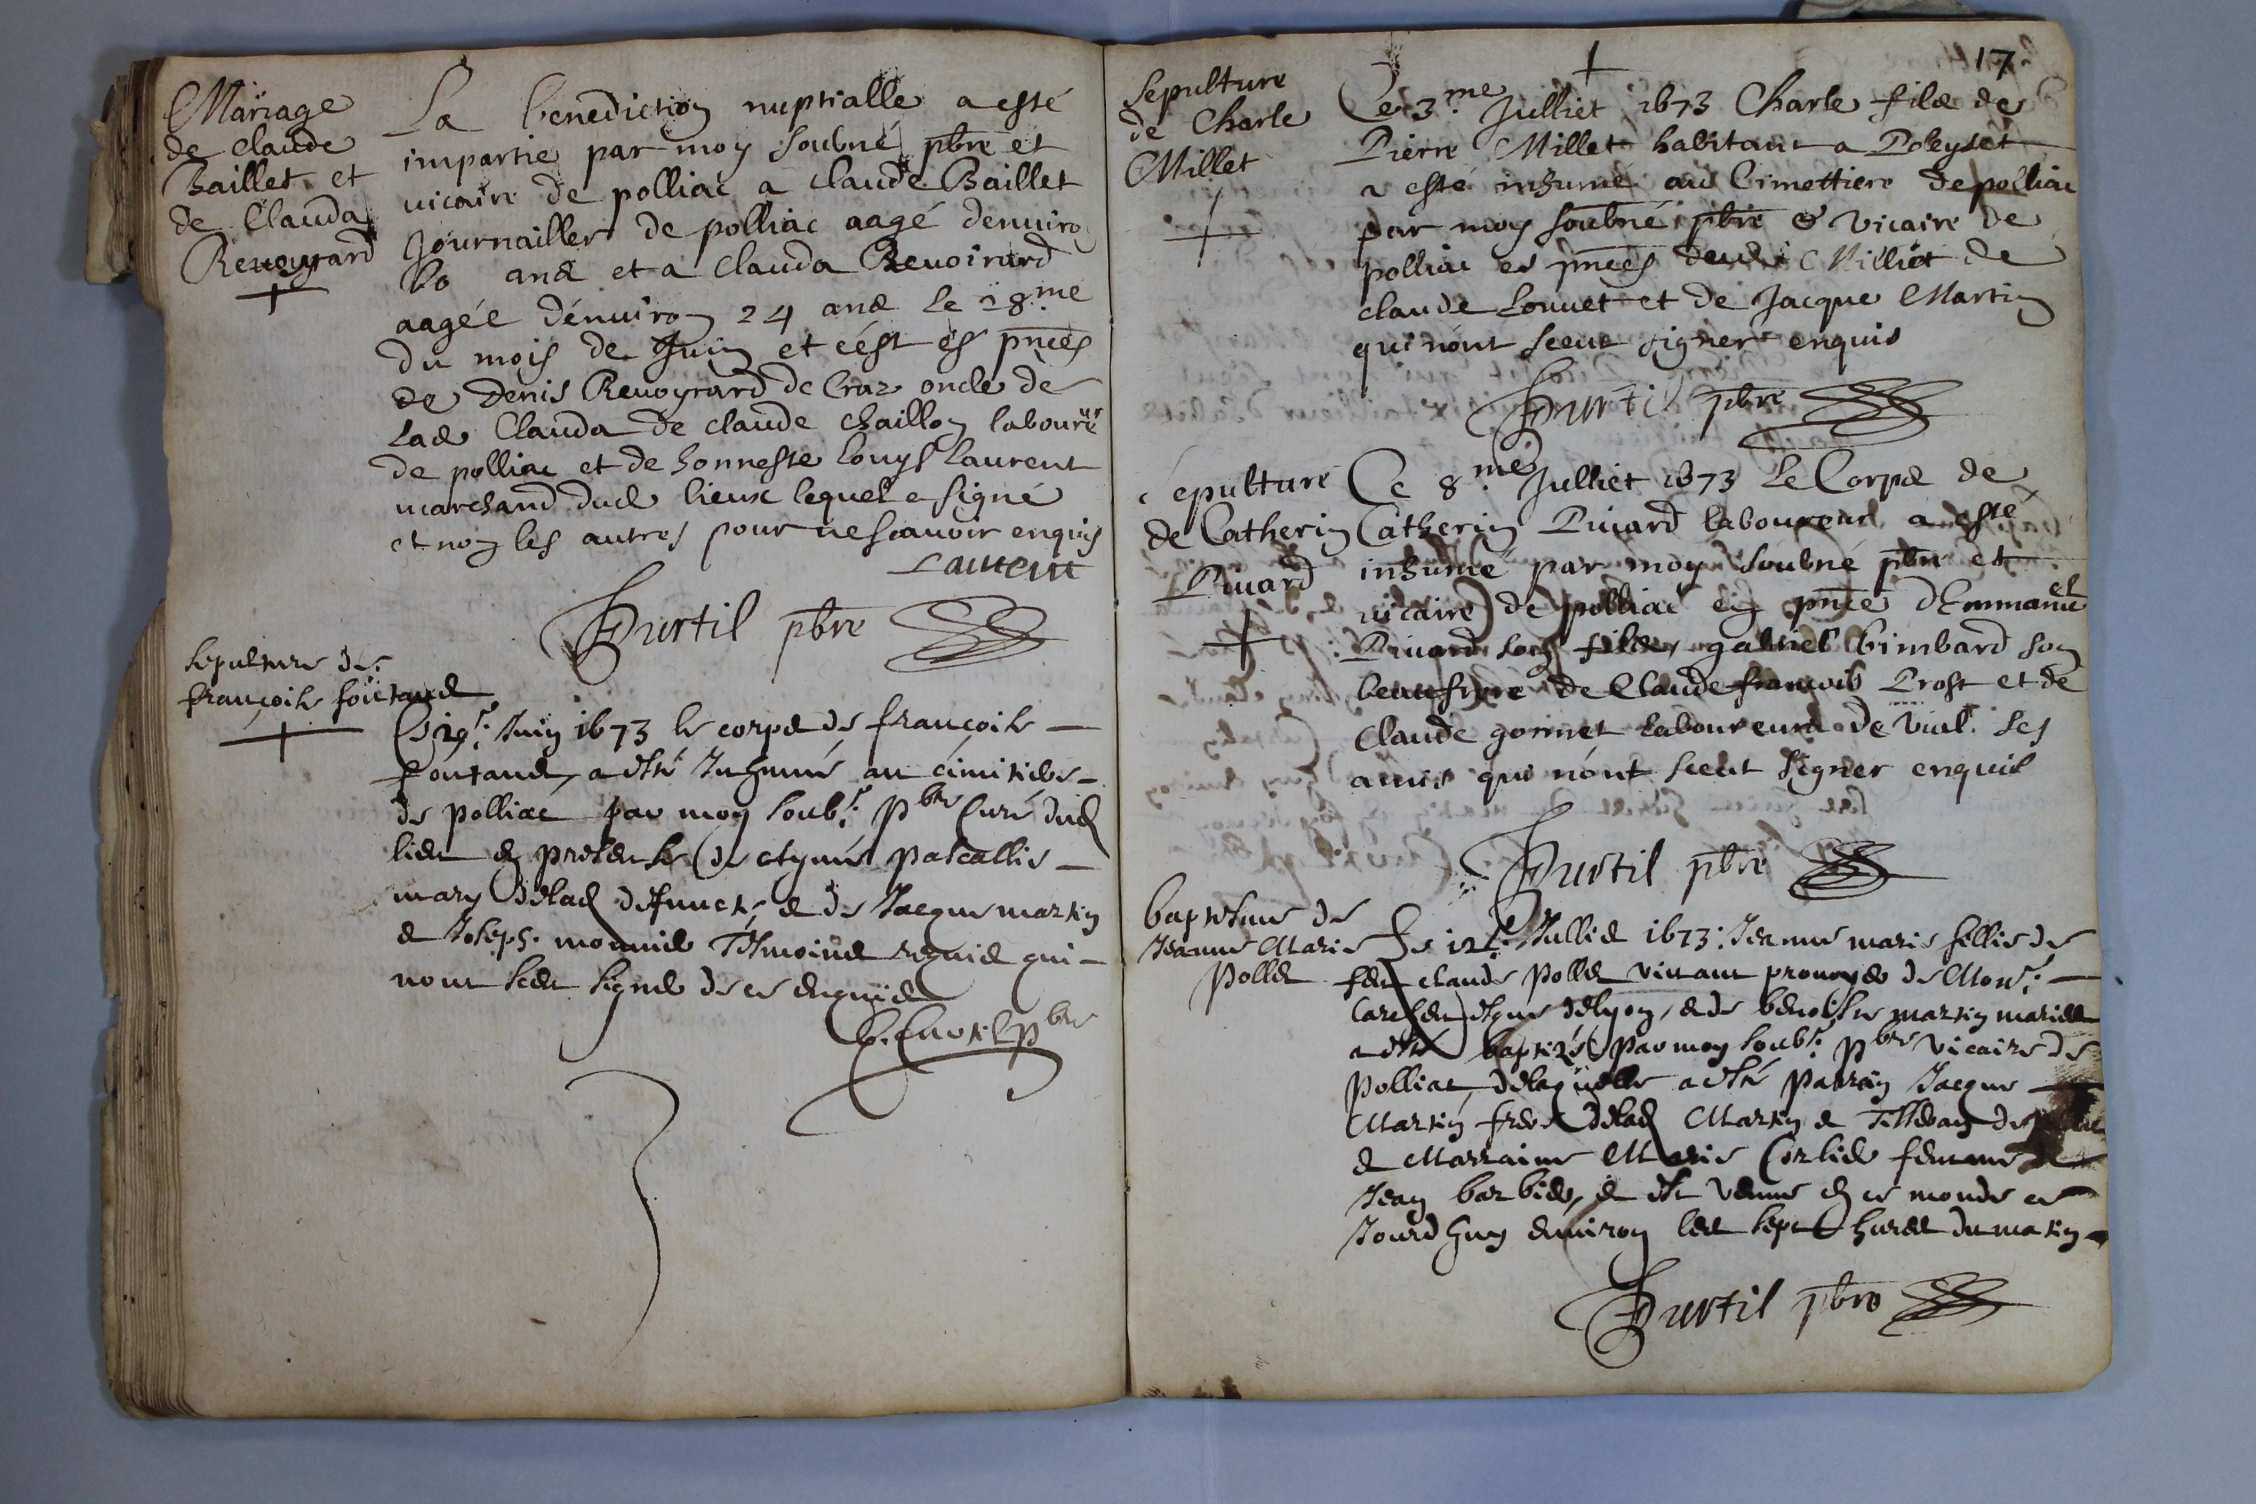 Mariage
de claude
Baillet et
de Clauda
Revoyrard
La benediction nuptialle a esté
impartie par moy soubné pbre et
vicaire de polliac a claude Baillet
Journailler de polliac aagé denviro
60 ans et a Clauda Revoirard
aagée dénviron 24 ans le 28.me
du mois de Juin et cést és pnces
de Denis Revoyrard de Craz oncle de
lad Clauda de claude chaillon laboureur
de polliac et de honneste Louys Laurent
marchand dud lieux lequel a signé
et non les autres pour ne scavoir enquis
Laurent
Burtil pbre
sepulture de
françoise foutand
Ce 29.e Juin 1673 le corps de françoise
foutand, a esté Inhumé au cimitiere
de polliac par moy soubs.e pbre Curé dud
lieu en presence de Pascallis
mary delad defuncte, & de Jacque martin
& Joseph monnier Tesmoins requis qui
nont sceu signer de ce enquis
pbre
17
Sepulture
de Charle
Millet
Ce 3.me Julliet 1673 Charle fils de
Pierre Millet habitant a Poleyset
a esté inhumé au Cimettiere de polliac
par moy soubné pbre & vicaire de
polliac es pnces deude Milliet de
claude Louvet et de Jacque Martin
qui nónt sceut signer enquis
Burtil pbre
Sepulture
de Catherin
Pivard
Ce 8.me Julliet 1673 Le Corps de
Catherin Pivard laboureur a esté
inhumé par moy soubné pbre et
vicaire de polliac en pnce dEmmanuel
Pivard son fils, gabriel Gimbard son
beaufrere de Claude françois Prost et de
Claude gonnet laboureurs de Vial. ses
amis qui nónt sceut signer enquis
Burtil pbre
baptesme de
Jeanne Marie
Pollet
Le 12.e Julliet 1673. Jeanne marie fillie de
feu claude Pollet vivant de Mons.r
delyon, & de benoiste martin mariés
a esté baptizée par moy soubs.e pbre vicaire de
Polliac, delaquelle a esté parrin Jacque
Martin frere delad Martin & Tisseran de
& Marraine Marie Corlier femme de
Jean barbier, & est venue en ce monde ce
Jourdhuy environ les sept hures du matin
Burtil pbre